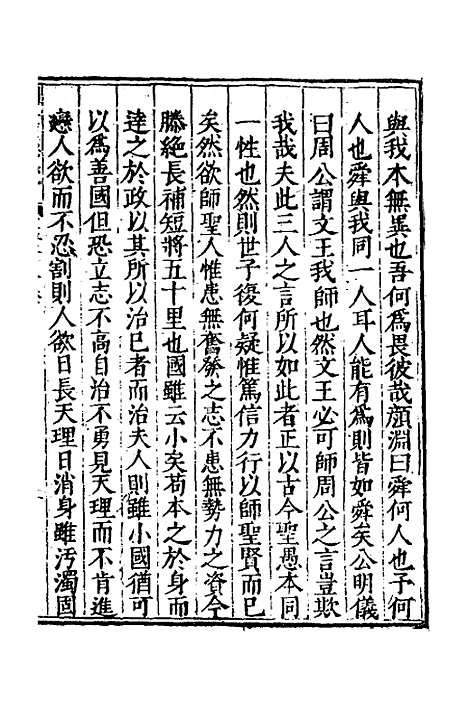 與我本無異也吾何爲畏彼哉顔淵曰舜何人也予何
人也舜與我同一人耳人能有爲則皆如舜矣公明儀
曰周公謂文王我師也然文王必可師周公之言豈欺
我哉夫此三人之言所以如此者正以古今聖愚本同
一性也然則世子復何疑惟篤信力行以師聖賢而已
矣然欲師聖人惟患無奮發之志不患無勢力之資今
滕絶長補短將五十里也國雖云小矣苟本之於身而
達之於政以其所以治已者而治夫人則雖小國猶可
以爲善國但恐立志不高自治不勇見天理而不肯進
戀人欲而不忍割則人欲日長天理日消身雖汚濁固